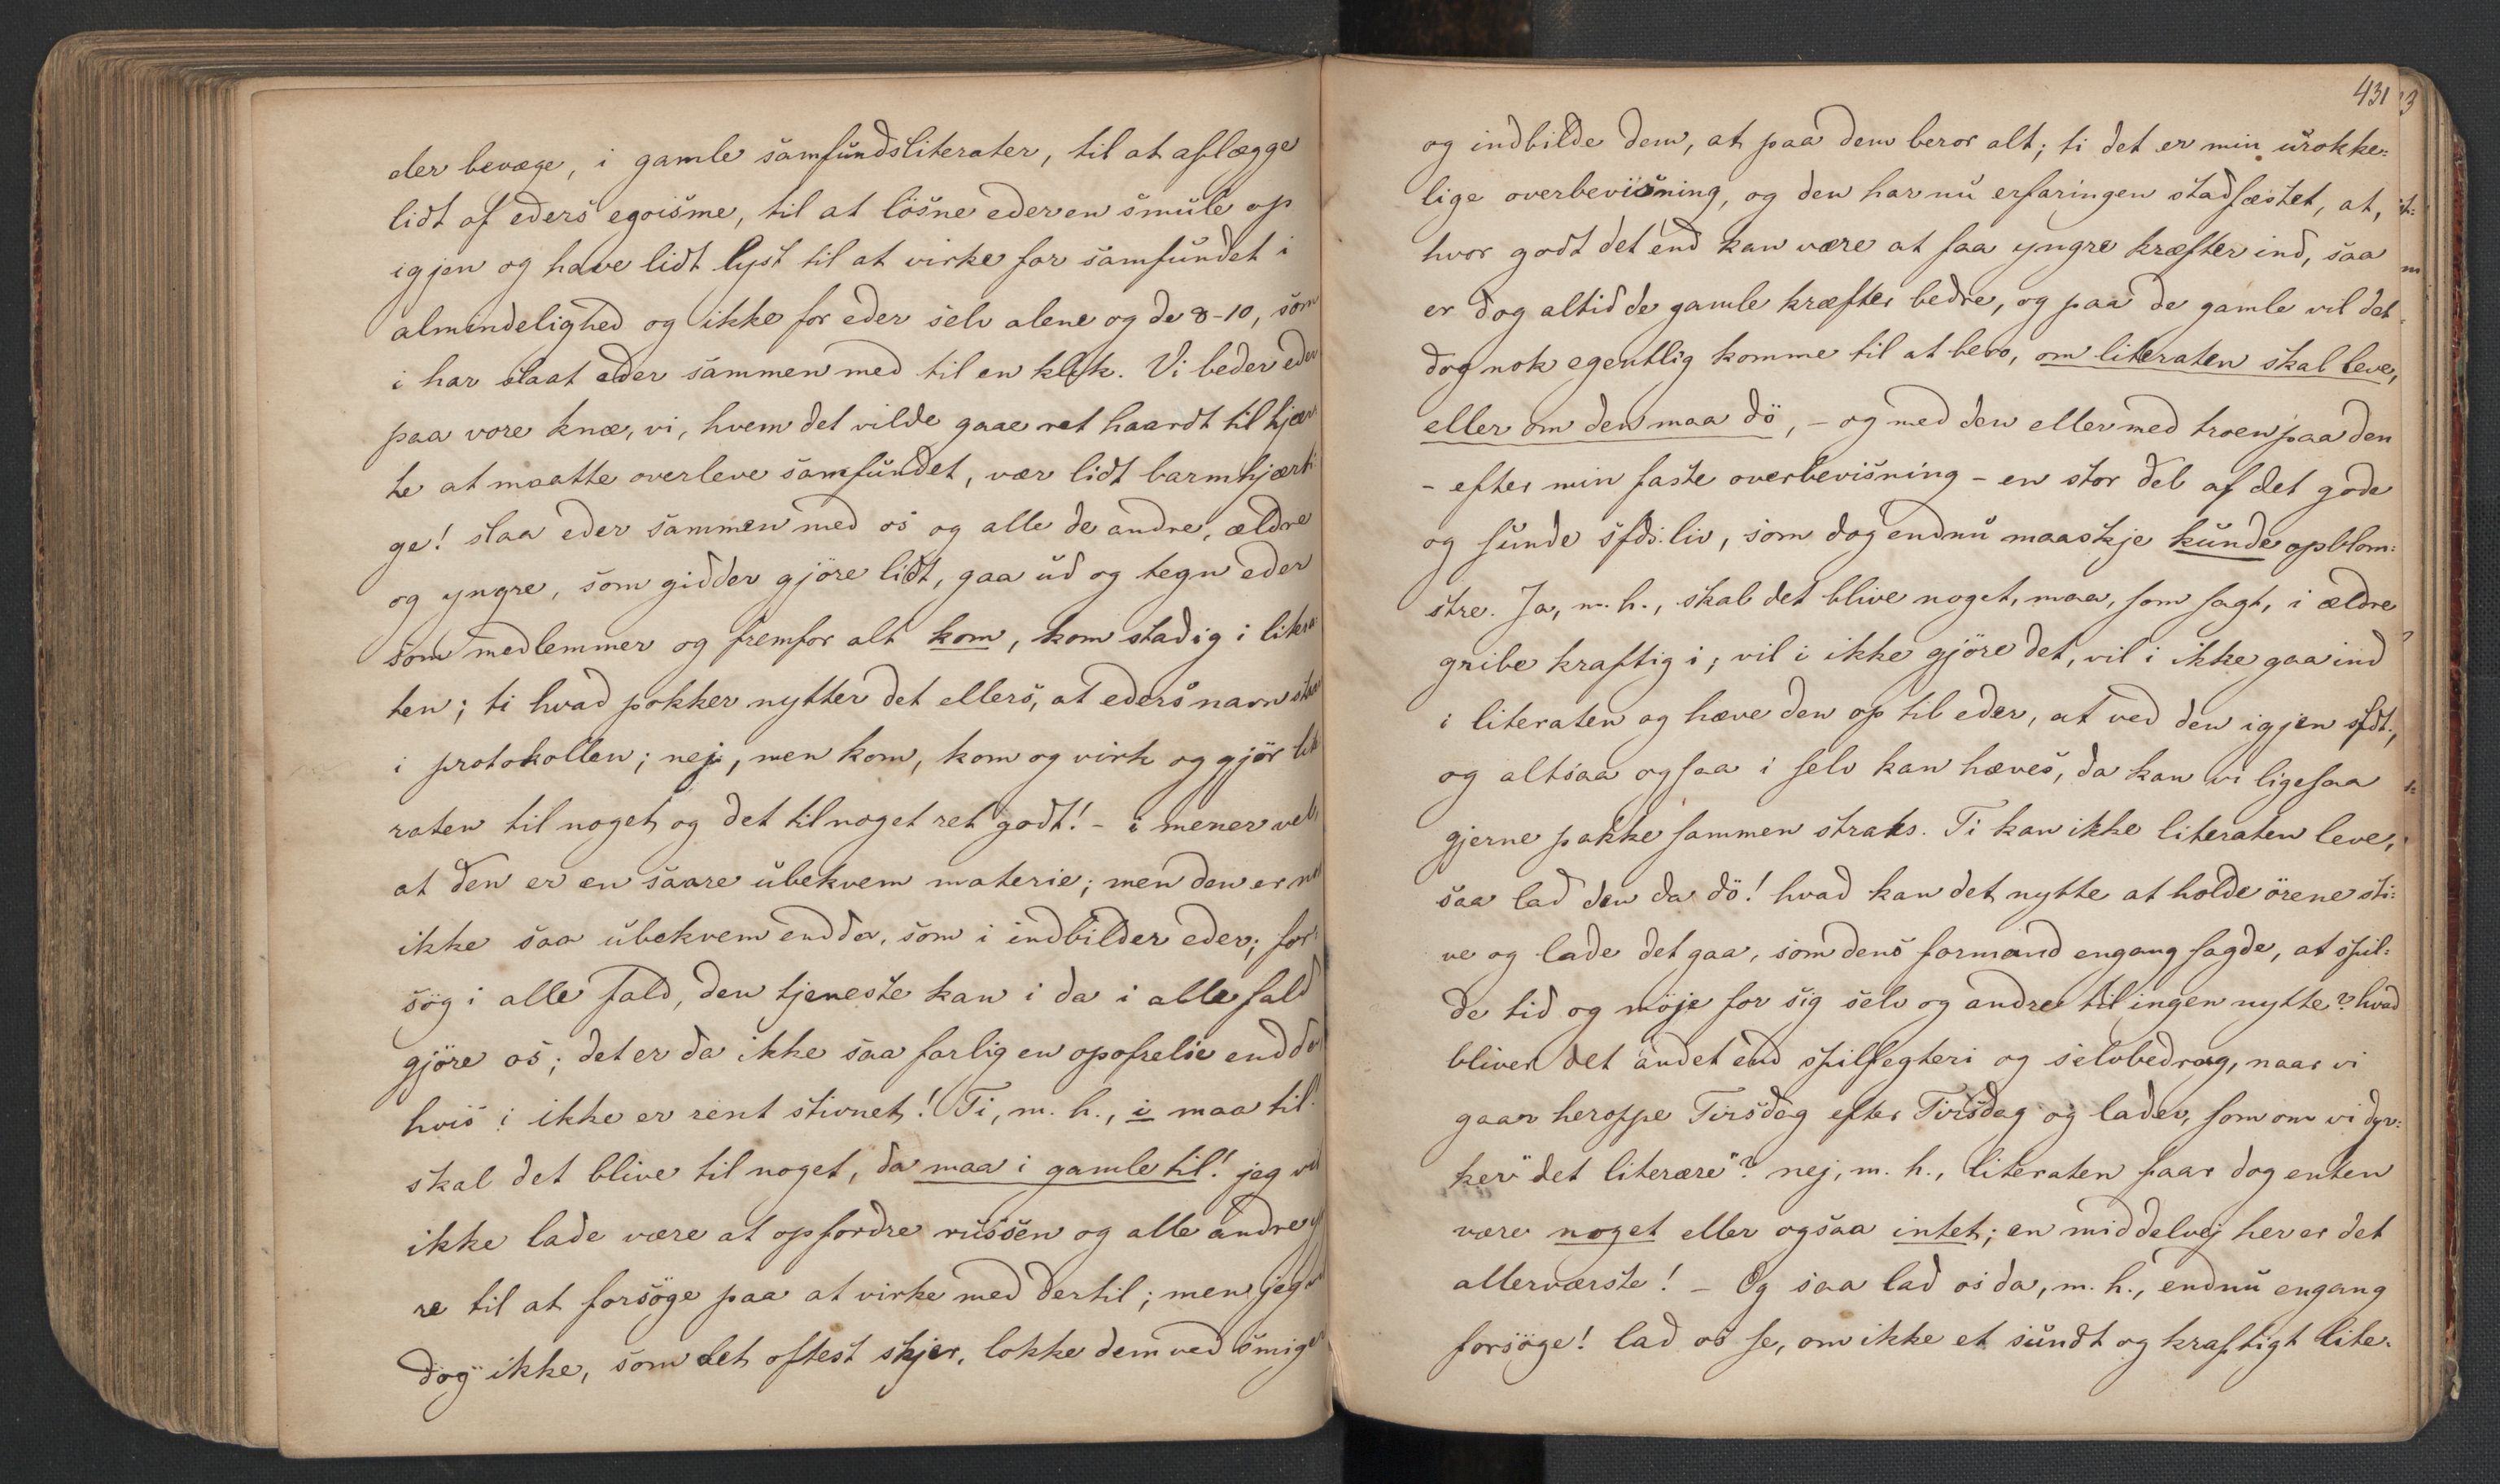 der bevæge, i gamle samfundsliterater, til at aflægge
lidt af eders egoisme, til at lösne eder en smule op
igjen og have lidt lyst til at virke for samfundet i
almindelighed og ikke for eder selv alene og de 8-10, som
i har slaat eder sammen med til en klik. Vi beder eder
paa vore knæ, vi, hvem det vilde gaae ret haardt til hjær-
te at maatte overleve samfundet, vær lidt barmhjærti-
ge! slaa eder sammen med os og alle de andre, ældre
og yngre, som gidder gjöre lidt, gaa ud og tegn eder
som medlemmer og fremfor alt kom, kom stadig i litera-
ten; ti hvad pokker nytter det ellers, at eders navn staar
i protokollen; nej, men kom, kom og virk og gjör lite
raten til noget og det til noget ret godt! - i mener vel,
at den er en saare ubekvem materie; men den er
ikke saa ubekvem endda, som i indbilder eder; for-
sög i alle fald, den tjeneste kan i da i alle fald
gjöre os; det er da ikke saa farlig en opofrelse endda
hvis i ikke er rent stivnet! Ti, m. h., i maa til!
skal det blive til noget, da maa i gamle til! jeg vil
ikke lade være at opfordre russen og alle andre
re til at forsöge paa at virke med dertil; men jeg
dog ikke, som det oftest skjer, lokke dem ved smiger
431
og indbilde dem, at paa dem beror alt; ti det er min urokke-
lige overbevisning, og den har nu erfaringen stadfæstet, at,
hvor godt det end kan være at faa yngre kræfter ind, saa
er dog altid de gamle kræfter bedre, og paa de gamle vil det
dog nok egentlig komme til at bero, om literaten skal leve,
eller om den maa dö, - og med den eller med troen paa den
- efter min faste overbevisning - en stor del af det gode
og sunde sfds.liv, som dog endnu maaskje kunde opblom-
stre. Ja, m. h., skal det blive noget, maa, som sagt, i ældre
gribe kraftig i; vil i ikke gjöre det, vil i ikke gaa ind
i literaten og hæve den op til eder, at ved den igjen sfdt.,
og altsaa ogsaa i selv kan hæves, da kan vi ligesaa
gjerne pakke sammen straks. Ti kan ikke literaten leve,
saa lad den da dö! hvad kan det nytte at holde örene sti-
ve og lade det gaa, som dens formand engang sagde, at spil-
de tid og möje for sig selv og andre til ingen nytte? hvad
bliver det andet end spilfegteri og selvbedrag, naar vi
gaar heroppe Tirsdag efter Tirsdag og lader, som om vi dyr-
ker "det literære"? nej, m. h., literaten faar dog enten
være noget eller ogsaa intet; en middelvej her er det
allerværste! - Og saa lad os da, m. h., endnu engang
forsöge! lad os se, om ikke et sundt og kraftigt lite-